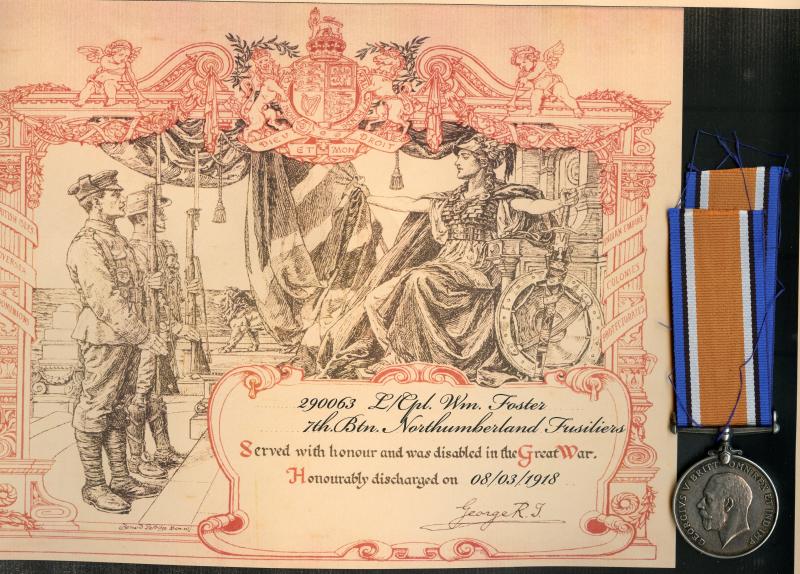 DIEU ET MON DROIT
BRITISH ISLES
GOVERNED
DOMINIONS
INDIAN EMPIRE
COLONIES
PROTECTORATES
290063 L/Cpl. Wm. Foster
7th.Btn. Northumberland Fusiliers
Served with honour and was disabled in the Great War.
Honourably discharged on 08/03/1918
George R. I.
GEORGIVS V BRITT: OMN: REX ET IND: IMP: